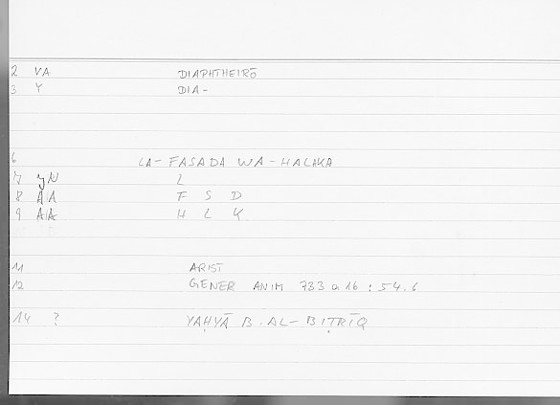 2 VA DIAPHTHEIRŌ
3 Y DIA-
6 LA-FASADA WA-HALAKA
7 JN L
8 AA F S D
9 AA H L K
11 ARIST
12 GENER ANIM 733 a 16 : 54.6
14 ? YAḤYĀ B. AL-BIṬRĪQ